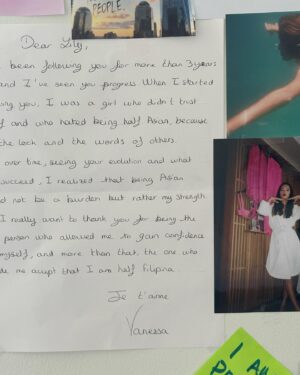 PEOPLE
Dear Lily,
been following you for more than 3 years
and I've seen you progress When I started
ing you, I was a girl who didn't trust
f and who hated being half Asian, because
the look and the words of others.
over time, seeing your evolution and what
succeed, I realized that being Asian
d not be a burden but rather my strength
I really want to thank you for being the
person who allowed me to gain confidence
myself, and more than that, the one who
de me accept that I am half filipina.
Je t'aime
Vanessa
I AM